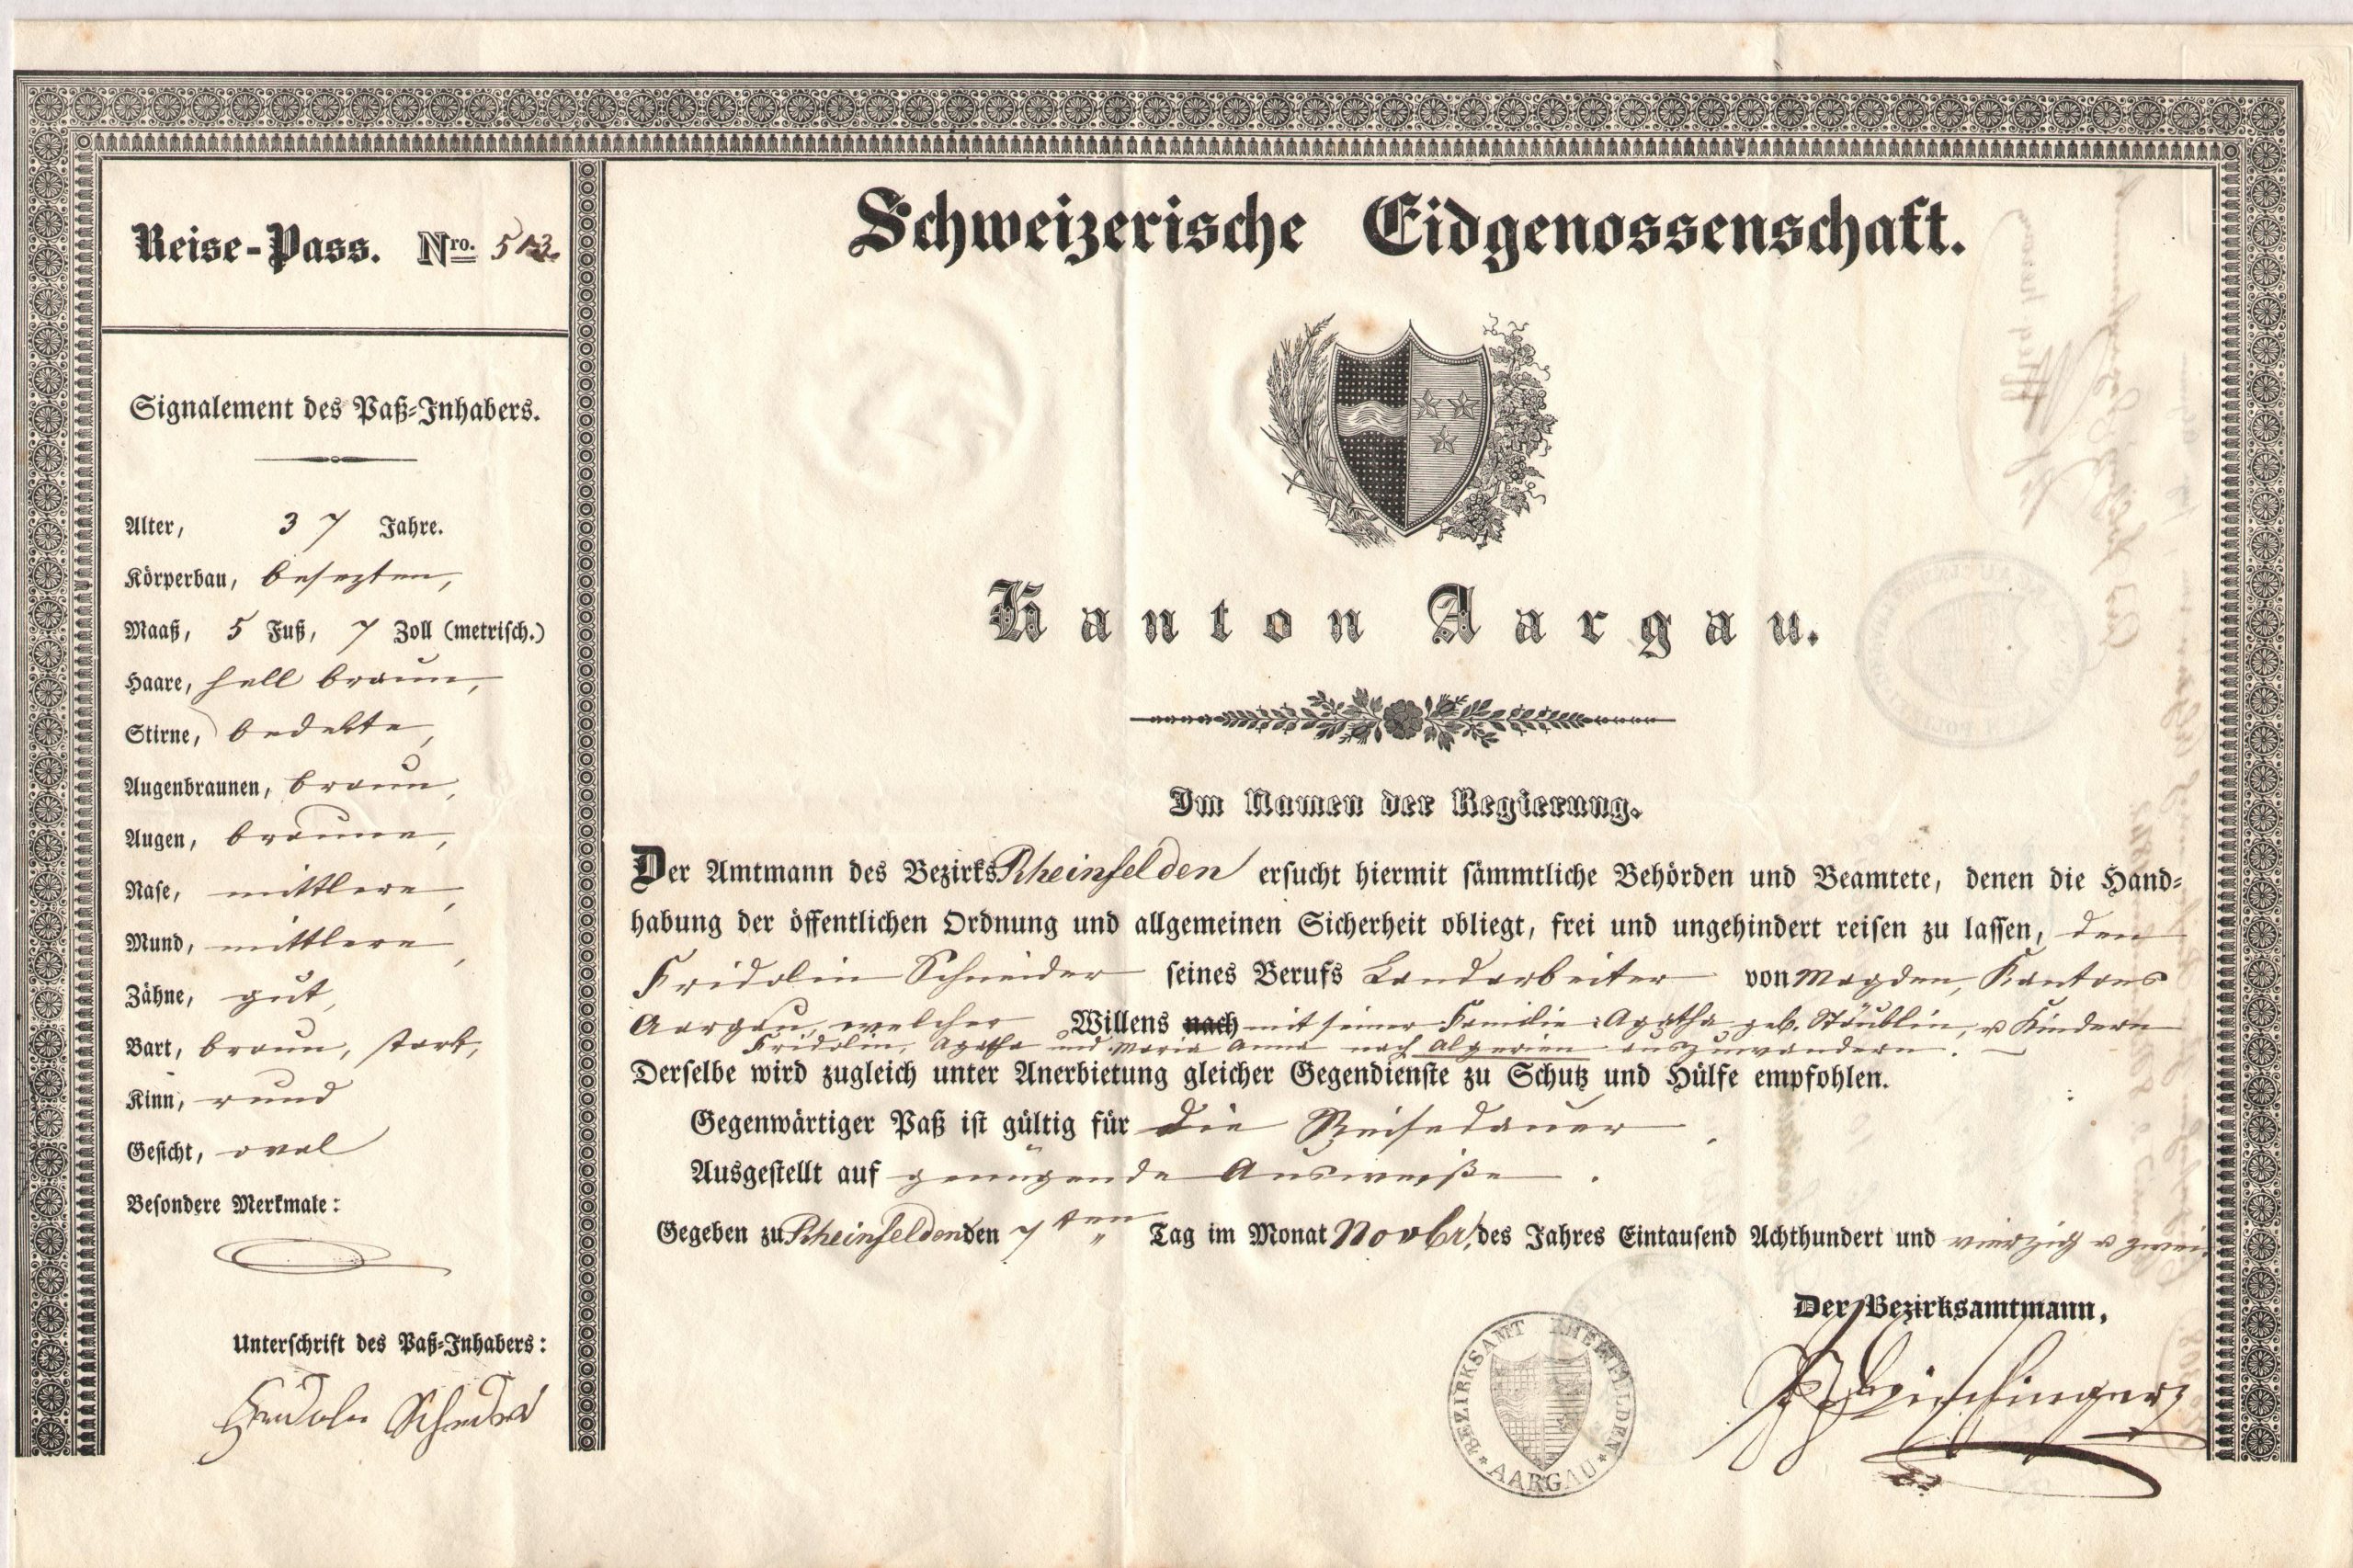 Reise-Pass. Nro. 513.
Signalement des Paß-Inhabers.
Alter, 37 Jahre.
Körperbau, besezten,
Maaß, 5 Fuß, 7 Zoll (metrisch.)
Haare, hell braun,
Stirne, bedekte,
Augenbraunen, braun,
Augen, braune,
Nase, mittlere,
Mund, mittlere,
Zähne, gut,
Bart, braun, stark,
Kinn, rund
Gesicht, oval
Besondere Merkmale:
Unterschrift des Paß-Inhabers:
Fridolin Schneider
Schweizerische Eidgenossenschaft.
Kanton Aargau.
Im Namen der Regierung.
Der Amtmann des Bezirks Rheinfelden ersucht hiermit sämmtliche Behörden und Beamtete, denen die Hand-
habung der öffentlichen Ordnung und allgemeinen Sicherheit obliegt, frei und ungehindert reisen zu lassen, den
Fridolin Schneider seines Berufs Landarbeiter von Magden, Kantons
Aargau, welcher Willens nach mit seiner Familie: Agatha geb. Stäublin, u Kindern
Fridolin, Agatha und Maria Anna nach Algerien auszuwandern.
Derselbe wird zugleich unter Anerbietung gleicher Gegendienste zu Schutz und Hülfe empfohlen.
Gegenwärtiger Paß ist gültig für die Reisedauer.
Ausgestellt auf genügende Ausweiße.
Gegeben zu Rheinfelden den 7ten Tag im Monat Novbr. des Jahres Eintausend Achthundert und vierzig u zwei.
Der Bezirksamtmann,
BEZIRKSAMT RHEINFELDEN
AARGAU